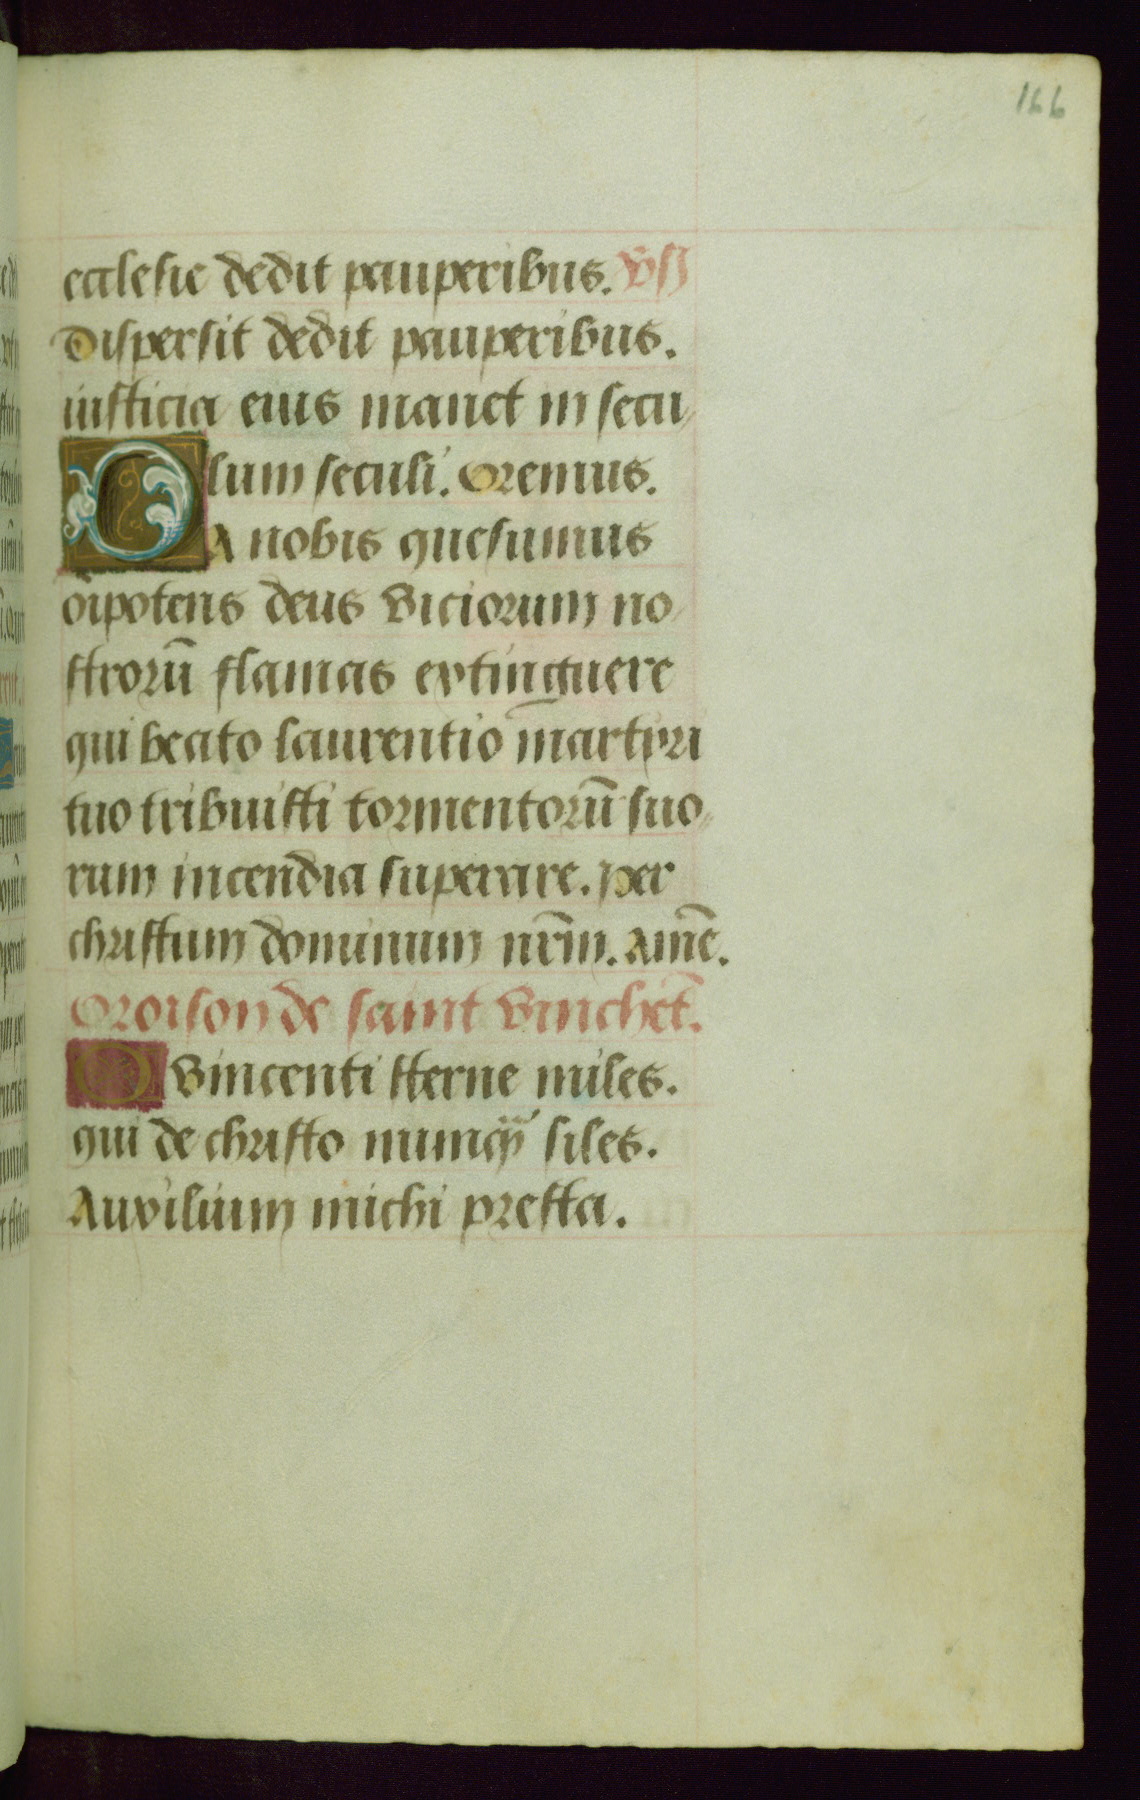 166
ecclesie dedit pauperibus. vs
Dispersit dedit pauperibus.
iusticia eius manet in secu
lum seculi. Oremus.
DA nobis quesumus
oīpotens deus viciorum no
strorū flamas extinguere
qui beato laurentio martyri
tuo tribuisti tormentorū suo
rum incendia superare. Per
christum dominum nr̄m. Amē.
Oroison de saint vinchēt.
O vincenti sterne miles.
qui de christo numq̄ siles.
Auxilium michi presta.